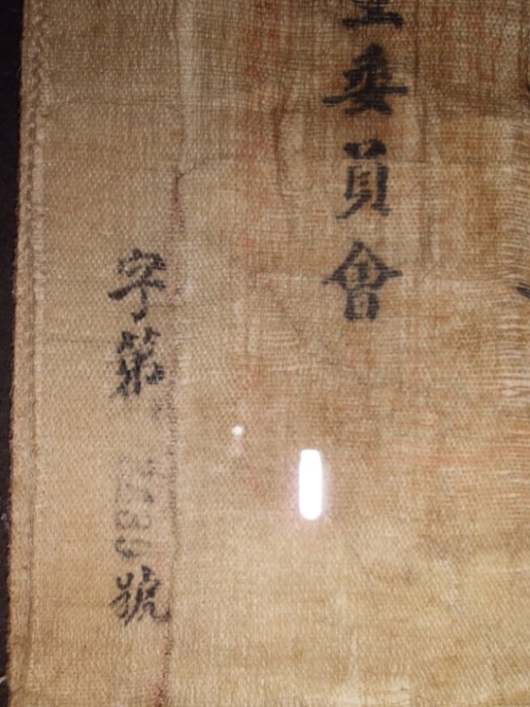 空委員會
字第
號